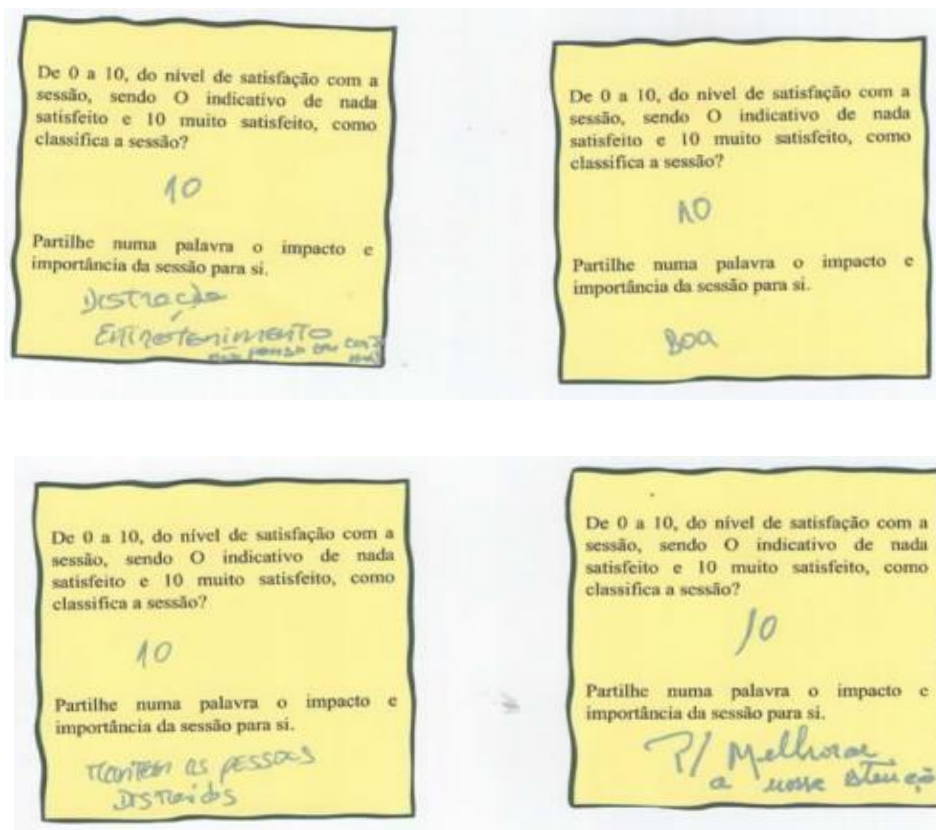 De 0 a 10, do nível de satisfação com a
sessão, sendo O indicativo de nada
satisfeito e 10 muito satisfeito, como
classifica a sessão?
10
Partilhe numa palavra o impacto e
importância da sessão para si.
Distração
Entretenimento
não penso em
De 0 a 10, do nível de satisfação com a
sessão, sendo O indicativo de nada
satisfeito e 10 muito satisfeito, como
classifica a sessão?
10
Partilhe numa palavra o impacto e
importância da sessão para si.
Boa
De 0 a 10, do nível de satisfação com a
sessão, sendo O indicativo de nada
satisfeito e 10 muito satisfeito, como
classifica a sessão?
10
Partilhe numa palavra o impacto e
importância da sessão para si.
Mantem as pessoas
Distraidas
De 0 a 10, do nível de satisfação com a
sessão, sendo O indicativo de nada
satisfeito e 10 muito satisfeito, como
classifica a sessão?
10
Partilhe numa palavra o impacto e
importância da sessão para si.
P/ Melhorar
a nossa atenção